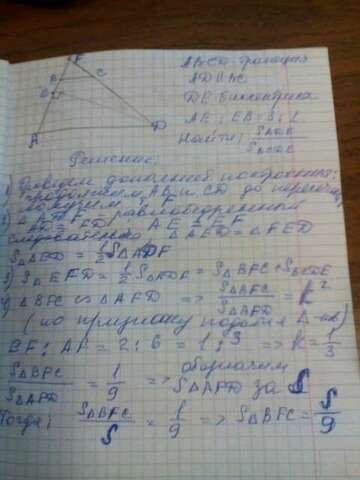 F
B
C
E
A
D
ABCD - трапеция
AD || BC
DE - биссектриса
AE : EB = 2 : 1
Найти: S ADE
S BCDE
Решение:
1) Проведем дополнит. построения:
продолжим AB и CD до пересеч.
F
2) Δ ADF равнобедренный
AD = FD AE = EF
следовательно Δ AED = Δ FED
S Δ AED = 1/2 S Δ ADF
3) S Δ EFD = 1/2 S Δ ADF = S Δ BFC + S BCDE
4) Δ BFC ∽ Δ AFD => S Δ BFC / S Δ AFD = k²
(по признаку подобия Δ-ков)
BF : AF = 2 : 6 = 1 : 3 => k = 1/3
S Δ BFC / S Δ AFD = 1/9 => обозначим S Δ AFD за S
Тогда: S Δ BFC / S = 1/9 => S Δ BFC = S/9